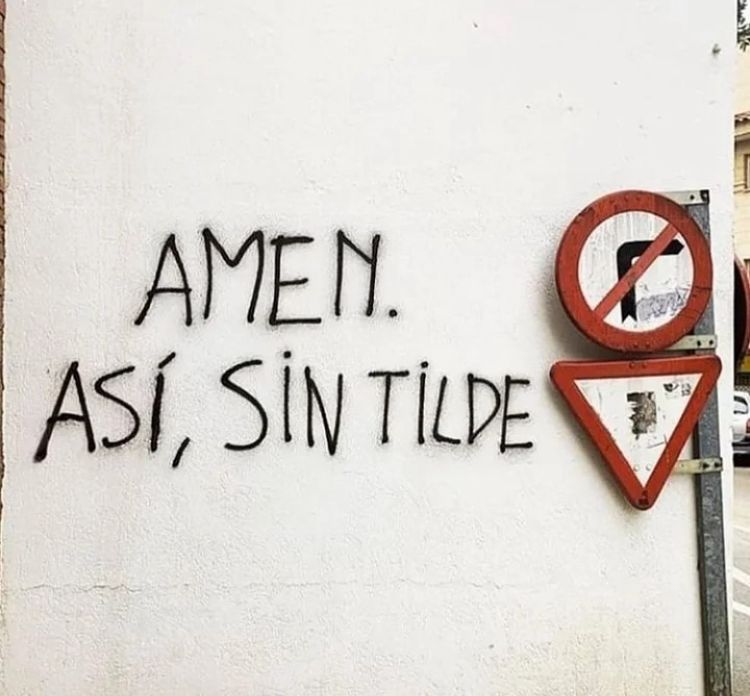 AMEN.
ASÍ, SIN TILDE